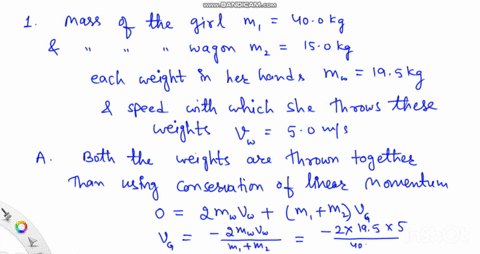 WWW.BANDICAM.COM
1. Mass of the girl m₁ = 40.0 kg
& " " " wagon m₂ = 15.0 kg
each weight in her hands m_w = 19.5 kg
& speed with which she throws these
weights V_w = 5.0 m/s
A. Both the weights are thrown together
Than using conservation of linear momentum
0 = 2 m_w V_w + (m₁ + m₂) V_G
V_G = -2 m_w V_w / m₁ + m₂ = -2 × 19.5 × 5 / 40.